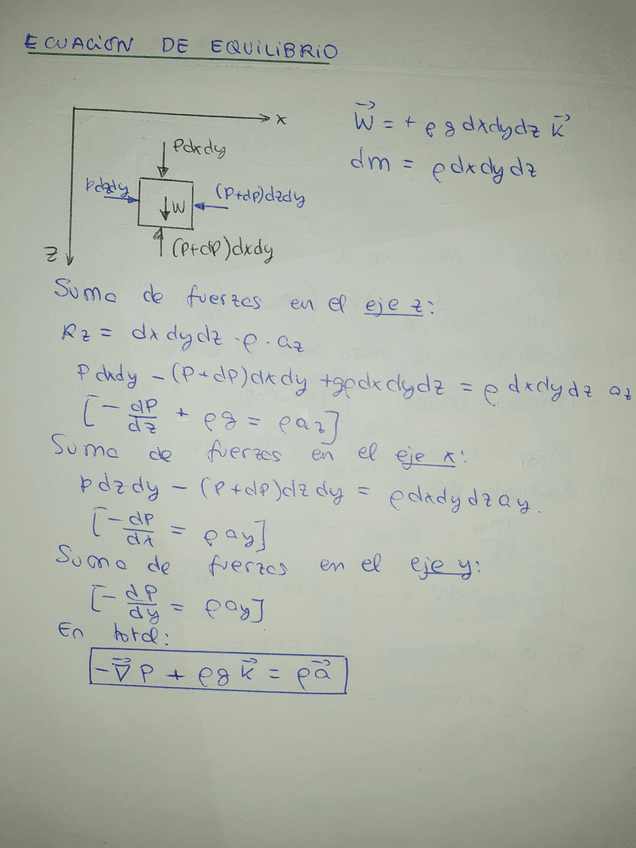 ECUACIÓN DE EQUILIBRIO
x
z
Pdxdy
Pdzdy
(P+dP)dzdy
W
(P+dP)dxdy
W⃗ = + ρg dxdydz k⃗
dm = ρdxdydz
Suma de fuerzas en el eje z:
Rz = dxdydz·ρ·az
Pdxdy - (P+dP)dxdy + gρdxdydz = ρ dxdydz az
[- dP/dz + ρg = ρaz]
Suma de fuerzas en el eje x:
Pdzdy - (P+dP)dzdy = ρdxdydz ay.
[- dP/dx = ρay]
Suma de fuerzas en el eje y:
[- dP/dy = ρay]
En total:
-∇⃗P + ρg k⃗ = ρa⃗